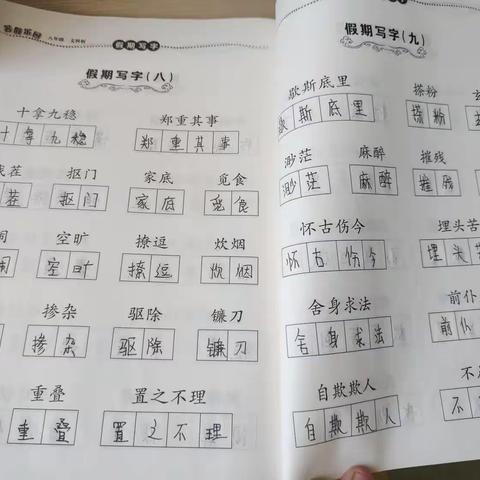 假乐园 八年级 文科版
假期写字
假期写字(八)
十拿九稳 郑重其事
十拿九稳 郑重其事
茬 抠门 家底 觅食
茬 抠门 家底 觅食
空旷 撩逗 炊烟
空旷 撩逗 炊烟
掺杂 驱除 镰刀
掺杂 驱除 镰刀
重叠 置之不理
重叠 置之不理
假期写字(九)
歇斯底里 搽粉
斯底里 搽粉
渺茫 麻醉 摧残
渺茫 麻醉 摧残
怀古伤今 埋头苦
怀古伤今 埋头
舍身求法 前仆
舍身求法 前仆
自欺欺人 不
自欺欺人 不